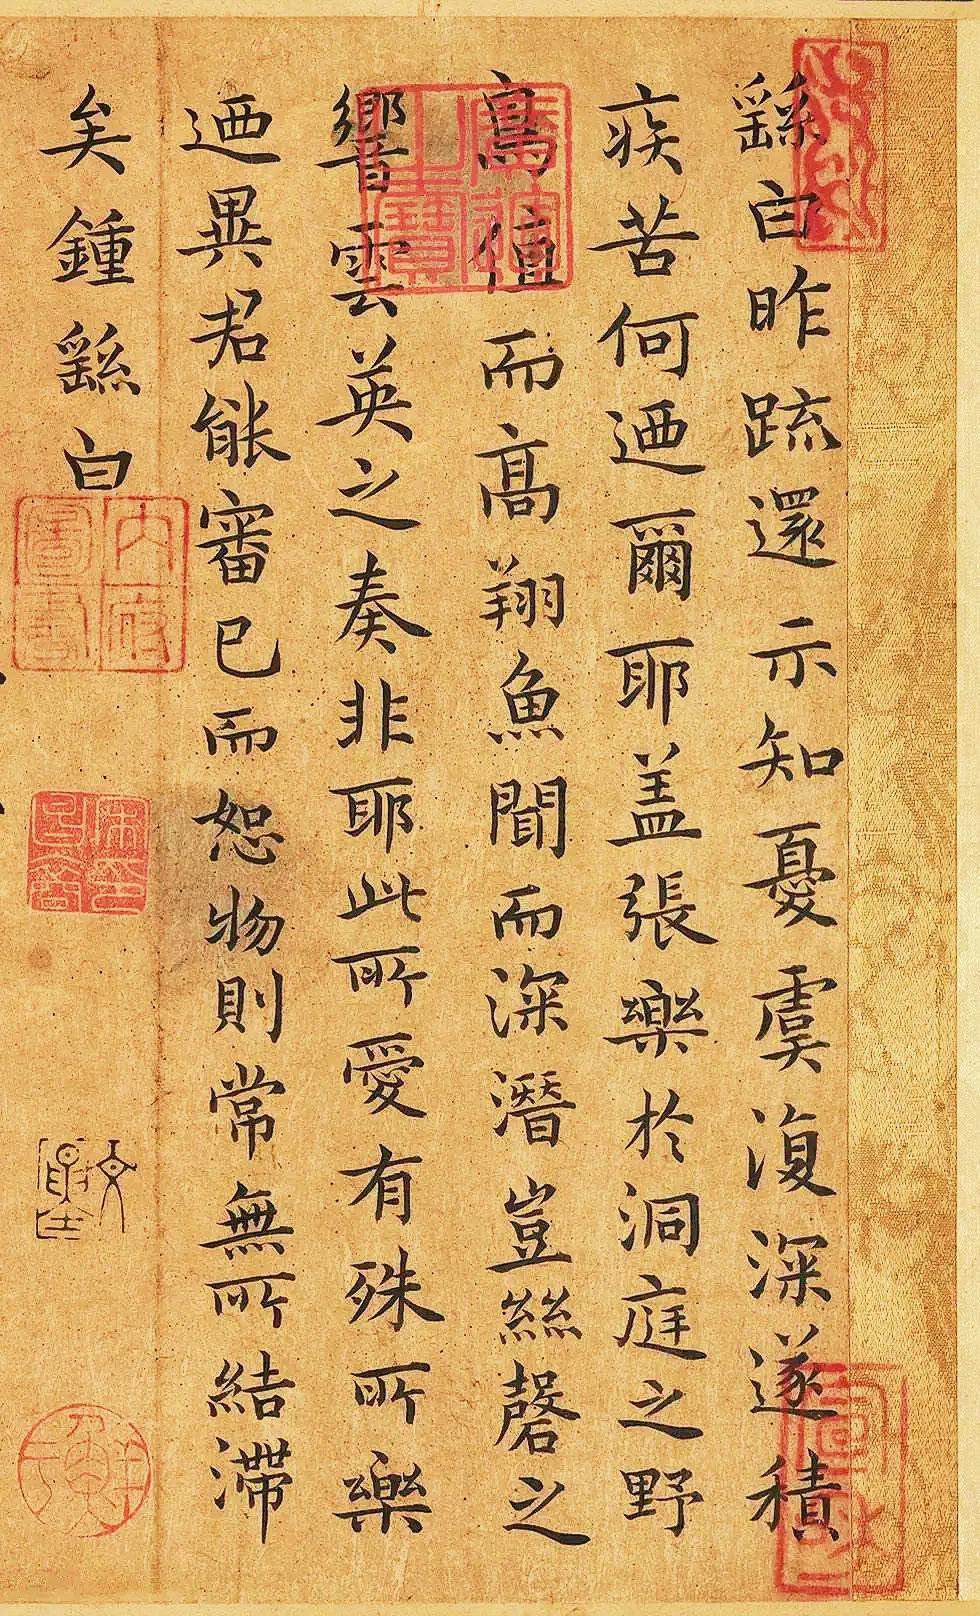 繇白昨疏還示知憂虞復深遂積
疾苦何迺爾耶盖張樂於洞庭之野
鳥值而高翔魚聞而深潛豈絲磬之
響雲英之奏非耶此所愛有殊所樂
迺異君能審己而恕物則常無所結滯
矣鍾繇白
內府圖書